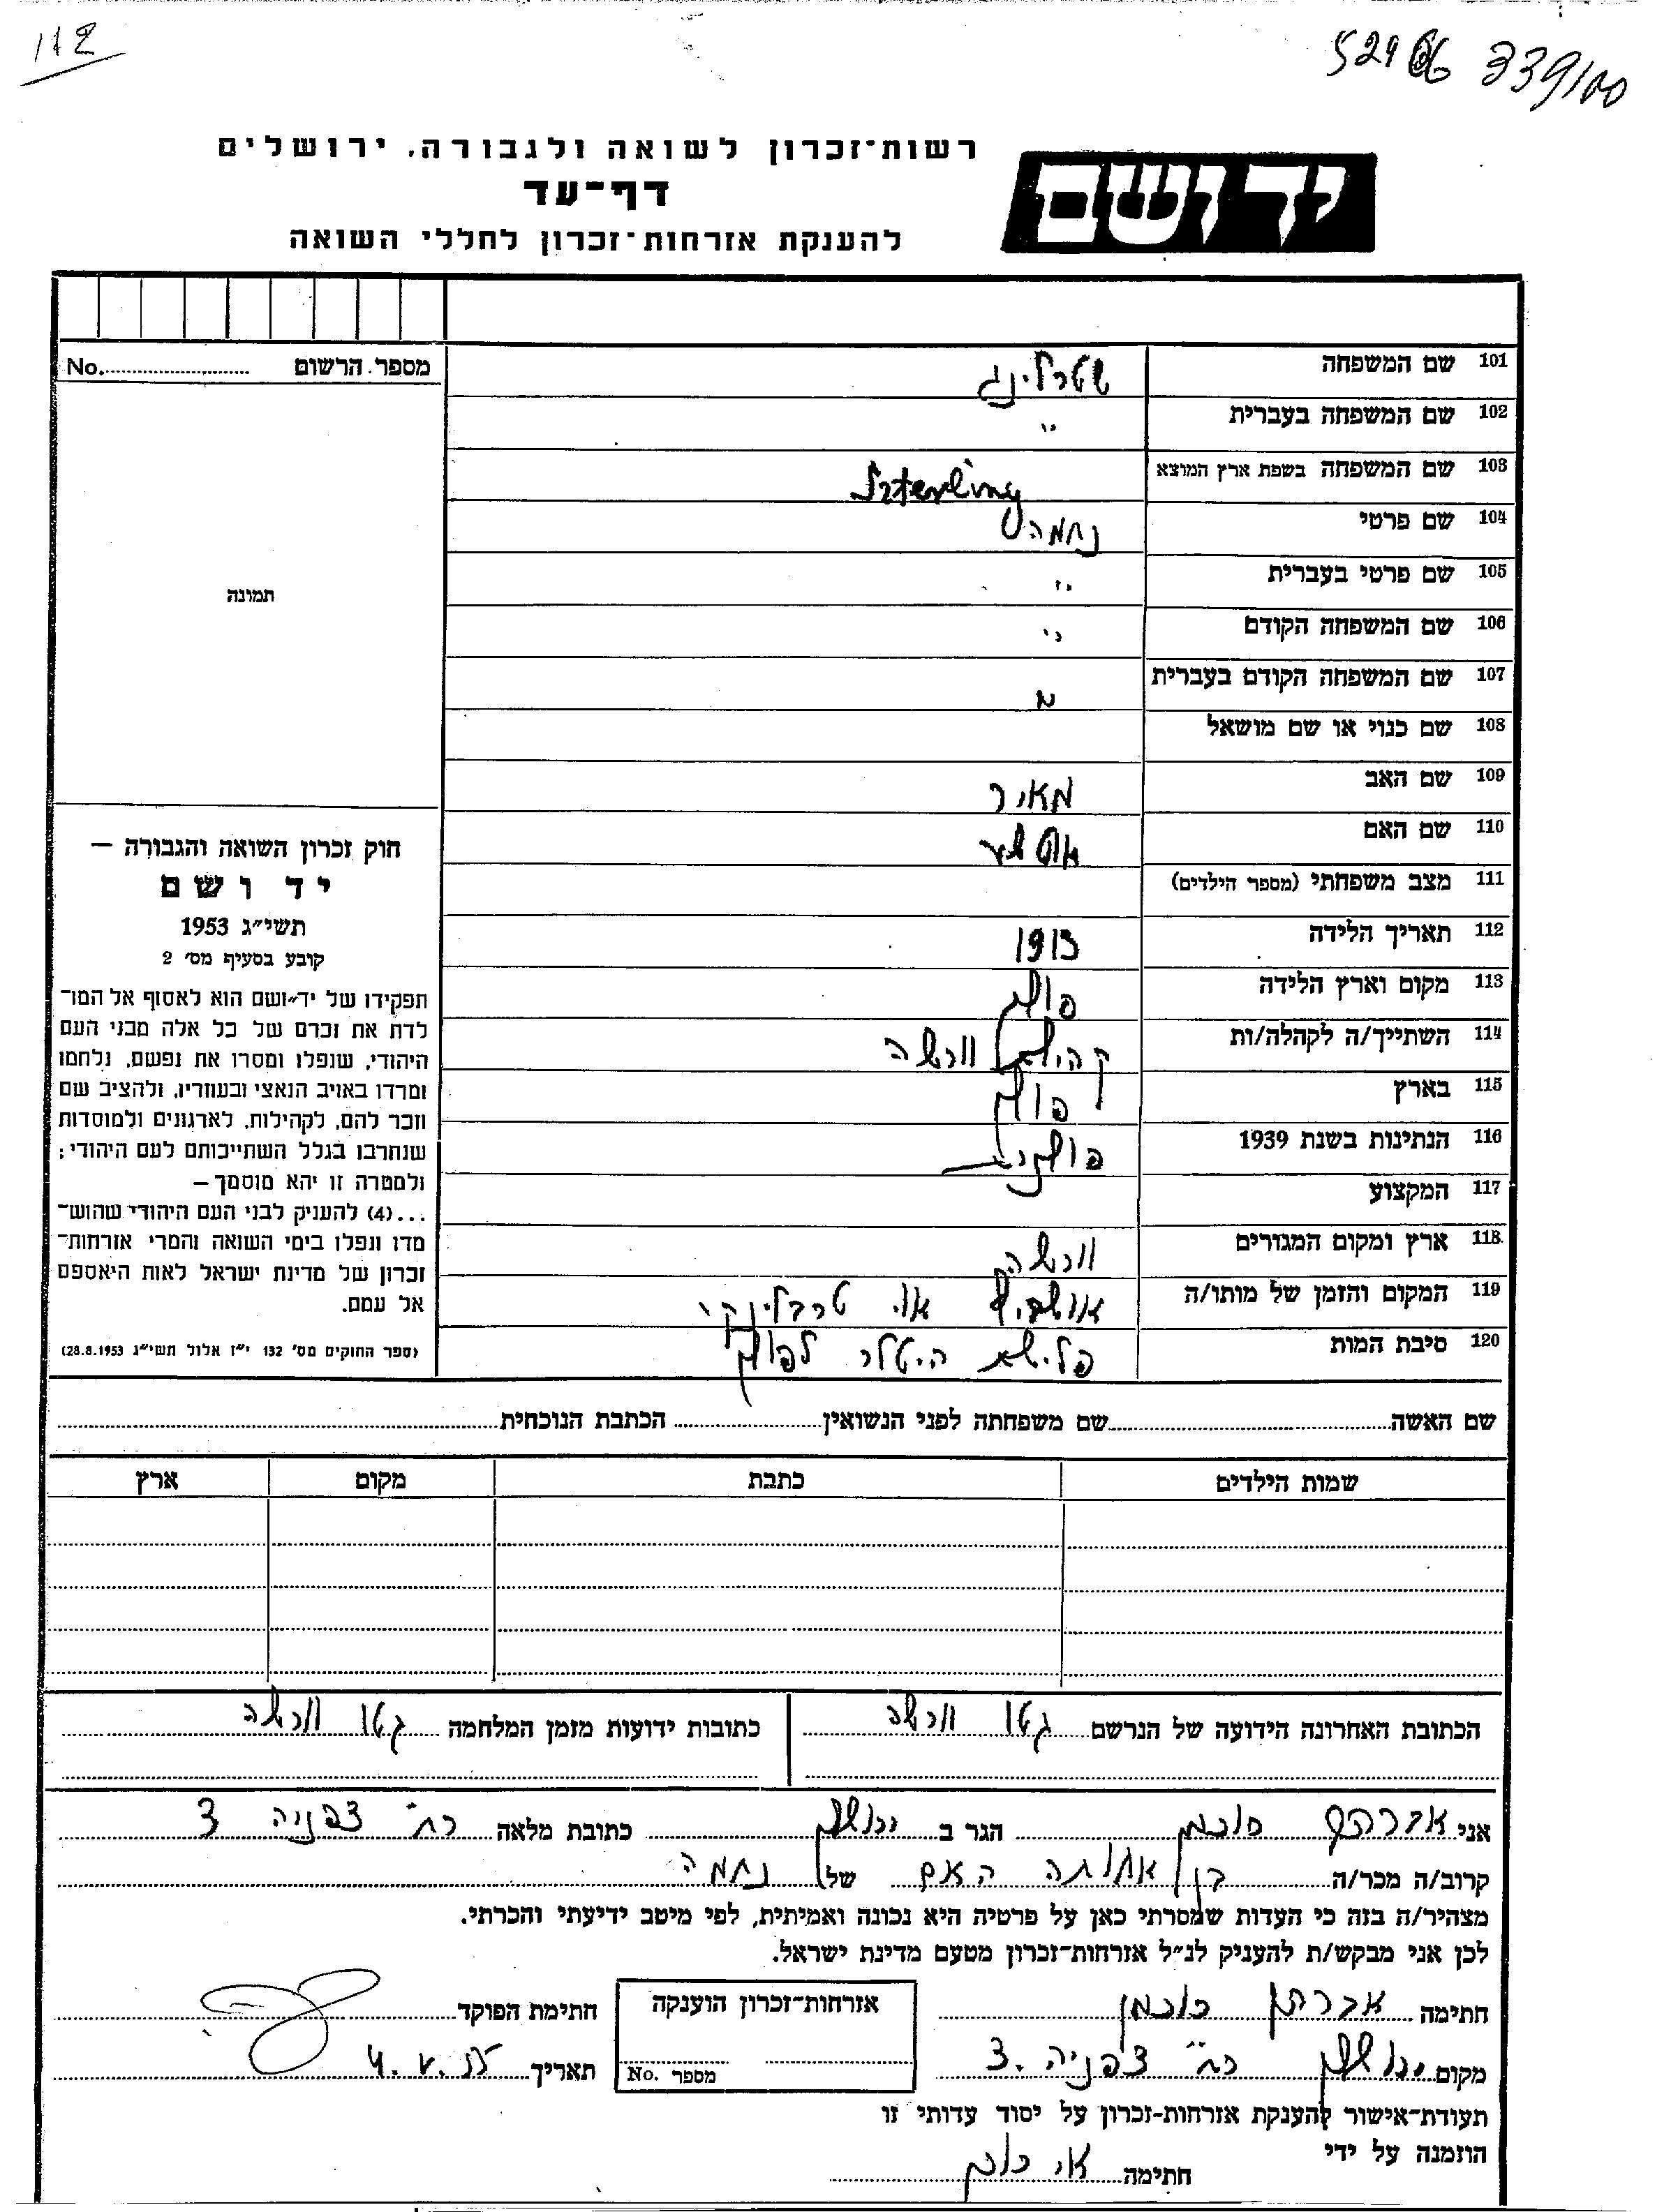 112
52966 339/00
רשות־זכרון לשואה ולגבורה, ירושלים
יד ושם
דף־עד
להענקת אזרחות־זכרון לחללי השואה
מספר הרשום No.
101 שם המשפחה שטרלינג
102 שם המשפחה בעברית "
103 שם המשפחה בשפת ארץ המוצא Szterling
104 שם פרטי נחמה
105 שם פרטי בעברית "
106 שם המשפחה הקודם "
107 שם המשפחה הקודם בעברית "
108 שם כנוי או שם מושאל
109 שם האב מאיר
110 שם האם
111 מצב משפחתי (מספר הילדים)
112 תאריך הלידה 1913
113 מקום וארץ הלידה פולין
114 השתייך/ה לקהלה/ות קהילת וורשה
115 בארץ פולין
116 הנתינות בשנת 1939 פולנית
117 המקצוע
118 ארץ ומקום המגורים וורשה
119 המקום והזמן של מותו/ה אושביץ או טרבלינקי
120 סיבת המות פלישת היטלר לפולין
תמונה
חוק זכרון השואה והגבורה —
יד ושם
תשי״ג 1953
קובע בסעיף מס׳ 2
תפקידו של יד״ושם הוא לאסוף אל המו־
לדת את זכרם של כל אלה מבני העם
היהודי, שנפלו ומסרו את נפשם, נלחמו
ומרדו באויב הנאצי ובעוזריו, ולהציב שם
וזכר להם, לקהילות, לארגונים ולמוסדות
שנחרבו בגלל השתייכותם לעם היהודי;
ולמטרה זו יהא מוסמך —
...(4) להעניק לבני העם היהודי שהוש־
מדו ונפלו בימי השואה והמרי אזרחות־
זכרון של מדינת ישראל לאות היאספם
אל עמם.
(ספר החוקים מס׳ 132 י״ז אלול תשי״ג 28.8.1953)
שם האשה שם משפחתה לפני הנשואין הכתבת הנוכחית
שמות הילדים כתבת מקום ארץ
הכתובת האחרונה הידועה של הנרשם גטו וורשה
כתובות ידועות מזמן המלחמה גטו וורשה
אני אברהם הגר ב ירושלים כתובת מלאה רח׳ צפניה 3
קרוב/ה מכר/ה בן אחותה האם של נחמה
מצהיר/ה בזה כי העדות שמסרתי כאן על פרטיה היא נכונה ואמיתית, לפי מיטב ידיעתי והכרתי.
לכן אני מבקש/ת להעניק לנ״ל אזרחות־זכרון מטעם מדינת ישראל.
חתימה אברהם
אזרחות־זכרון הוענקה
חתימת הפוקד
מקום ירושלים רח׳ צפניה 3.
מספר No.
תאריך 4.V.55
תעודת־אישור להענקת אזרחות-זכרון על יסוד עדותי זו
הוזמנה על ידי
חתימה